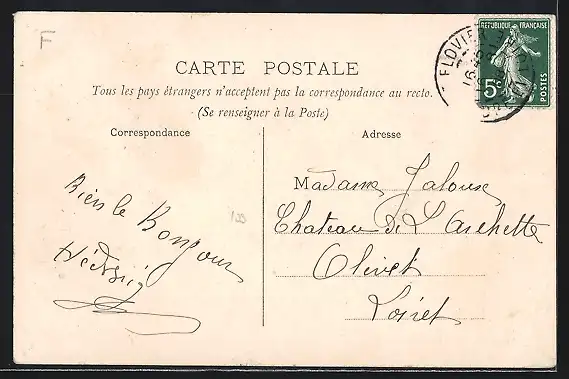 F
CARTE POSTALE
Tous les pays étrangers n'acceptent pas la correspondance au recto.
(Se renseigner à la Poste)
Correspondance
Adresse
REPUBLIQUE FRANÇAISE
5c
POSTES
Bien le Bonjour
Madame Jalouse
Chateau de L'Archette
Olivet
Loiret